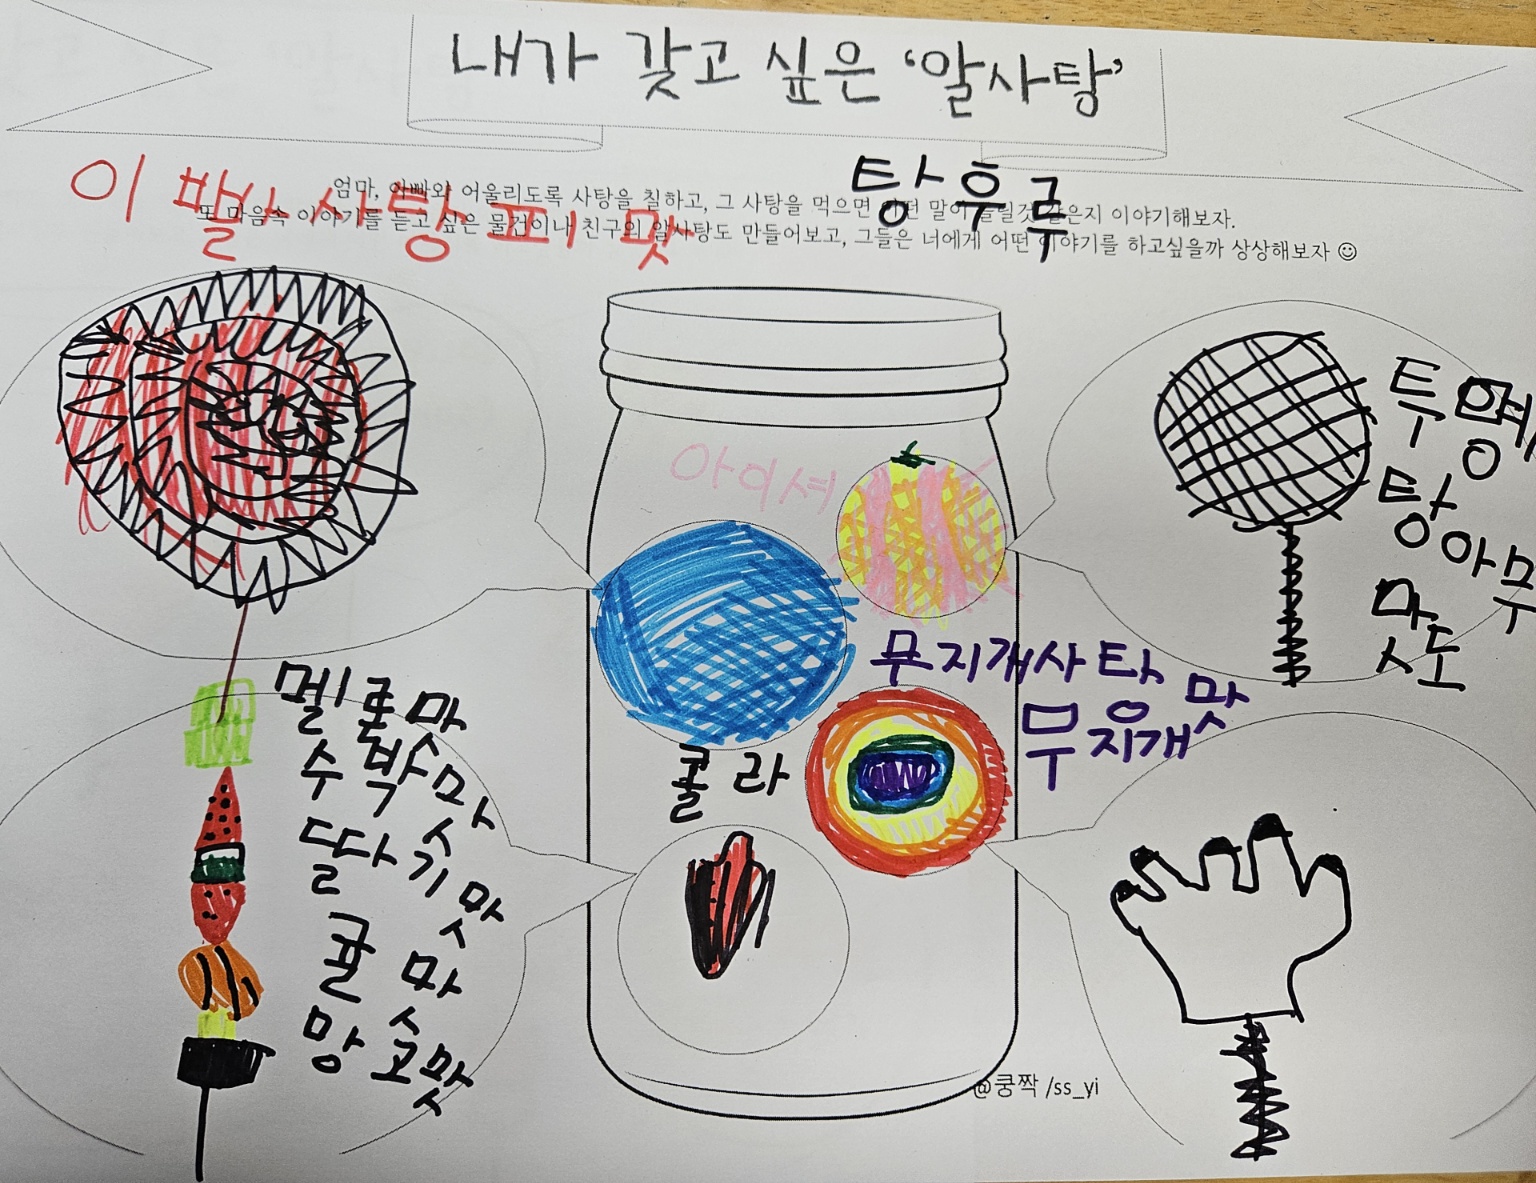 내가 갖고 싶은 '알사탕'
엄마, 아빠와 어울리도록 사탕을 칠하고, 그 사탕을 먹으면 어떤 말이 들릴것 같은지 이야기해보자.
또 마음속 이야기를 듣고 싶은 물건이나 친구의 알사탕도 만들어보고, 그들은 너에게 어떤 이야기를 하고싶을까 상상해보자 ☺
탕후루
아이셔
투명
탕 아무
맛도
무지개사탕
무지개맛
콜라
멜론맛
수박맛
딸기맛
귤맛
망고맛
@쿵짝 /ss_yi